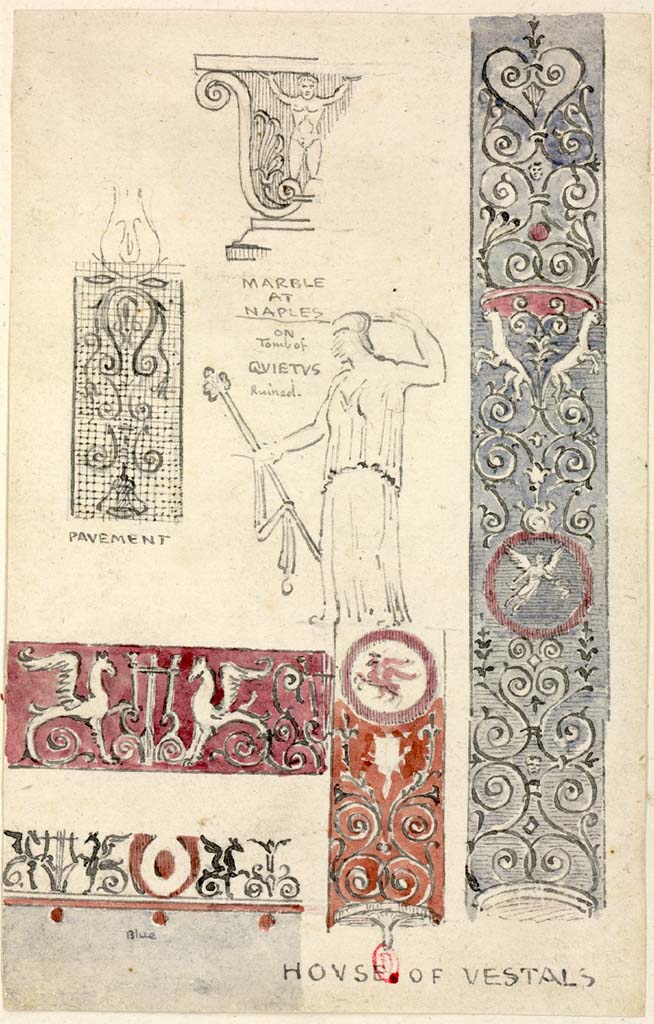 MARBLE
AT
NAPLES
ON
Tomb of
QVIETVS
Ruined.
PAVEMENT
Blue
HOVSE OF VESTALS